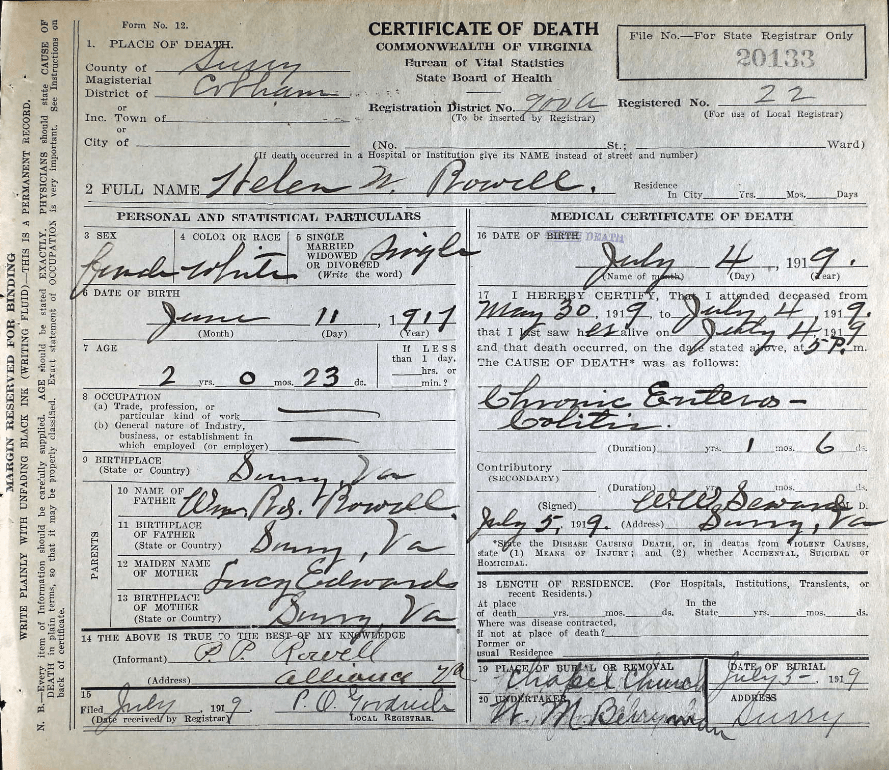 Form No. 12.
CERTIFICATE OF DEATH
COMMONWEALTH OF VIRGINIA
Bureau of Vital Statistics
State Board of Health
File No.—For State Registrar Only
20133
1. PLACE OF DEATH.
County of Surry
Magisterial
District of Cobham
or
Inc. Town of
or
City of
Registration District No. 900a
(To be inserted by Registrar)
Registered No. 22
(For use of Local Registrar)
(No. St.; Ward)
(If death occurred in a Hospital or Institution give its NAME instead of street and number)
2 FULL NAME Helen W. Rowell.
Residence
In City Yrs. Mos. Days
PERSONAL AND STATISTICAL PARTICULARS
3 SEX
Female
4 COLOR OR RACE
White
5 SINGLE
MARRIED
WIDOWED
OR DIVORCED
(Write the word)
Single
6 DATE OF BIRTH
June 11, 1917
(Month) (Day) (Year)
7 AGE
2 yrs. 0 mos. 23 ds.
If LESS
than 1 day,
hrs. or
min.?
8 OCCUPATION
(a) Trade, profession, or
particular kind of work
(b) General nature of Industry,
business, or establishment in
which employed (or employer)
9 BIRTHPLACE
(State or Country) Surry Va
PARENTS
10 NAME OF
FATHER Wm. Rowell
11 BIRTHPLACE
OF FATHER
(State or Country) Surry, Va
12 MAIDEN NAME
OF MOTHER Lucy Edwards
13 BIRTHPLACE
OF MOTHER
(State or Country) Surry, Va
14 THE ABOVE IS TRUE TO THE BEST OF MY KNOWLEDGE
(Informant) P. P. Rowell
(Address) Alliance Va
15
Filed July 1919 P. O. Goodrich
(Date received by Registrar) LOCAL REGISTRAR.
MEDICAL CERTIFICATE OF DEATH
16 DATE OF BIRTH DEATH
July 4, 1919.
(Name of month) (Day) (Year)
17 I HEREBY CERTIFY, That I attended deceased from
May 30, 1919, to July 4, 1919.
that I last saw her alive on July 4, 1919
and that death occurred, on the date stated above, at 5 P. m.
The CAUSE OF DEATH* was as follows:
Chronic Entero-
Colitis.
(Duration) yrs. 1 mos. 6 ds.
Contributory
(SECONDARY)
(Duration) yrs. mos. ds.
(Signed) W. W. Seward M. D.
July 5, 1919. (Address) Surry, Va
*State the DISEASE CAUSING DEATH, or, in deaths from VIOLENT CAUSES,
state (1) MEANS OF INJURY; and (2) whether ACCIDENTAL, SUICIDAL or
HOMICIDAL.
18 LENGTH OF RESIDENCE. (For Hospitals, Institutions, Transients, or
recent Residents.)
At place In the
of death yrs. mos. ds. State yrs. mos. ds.
Where was disease contracted,
if not at place of death?
Former or
usual Residence
19 PLACE OF BURIAL OR REMOVAL
Chapel Church
DATE OF BURIAL
July 5- 1919
20 UNDERTAKER
W. N. Berryman
ADDRESS
Surry
MARGIN RESERVED FOR BINDING
WRITE PLAINLY WITH UNFADING BLACK INK (WRITING FLUID)—THIS IS A PERMANENT RECORD.
N. B.—Every item of Information should be carefully supplied. AGE should be stated EXACTLY. PHYSICIANS should state CAUSE OF
DEATH in plain terms, so that it may be properly classified. Exact statement of OCCUPATION is very important. See Instructions on
back of certificate.